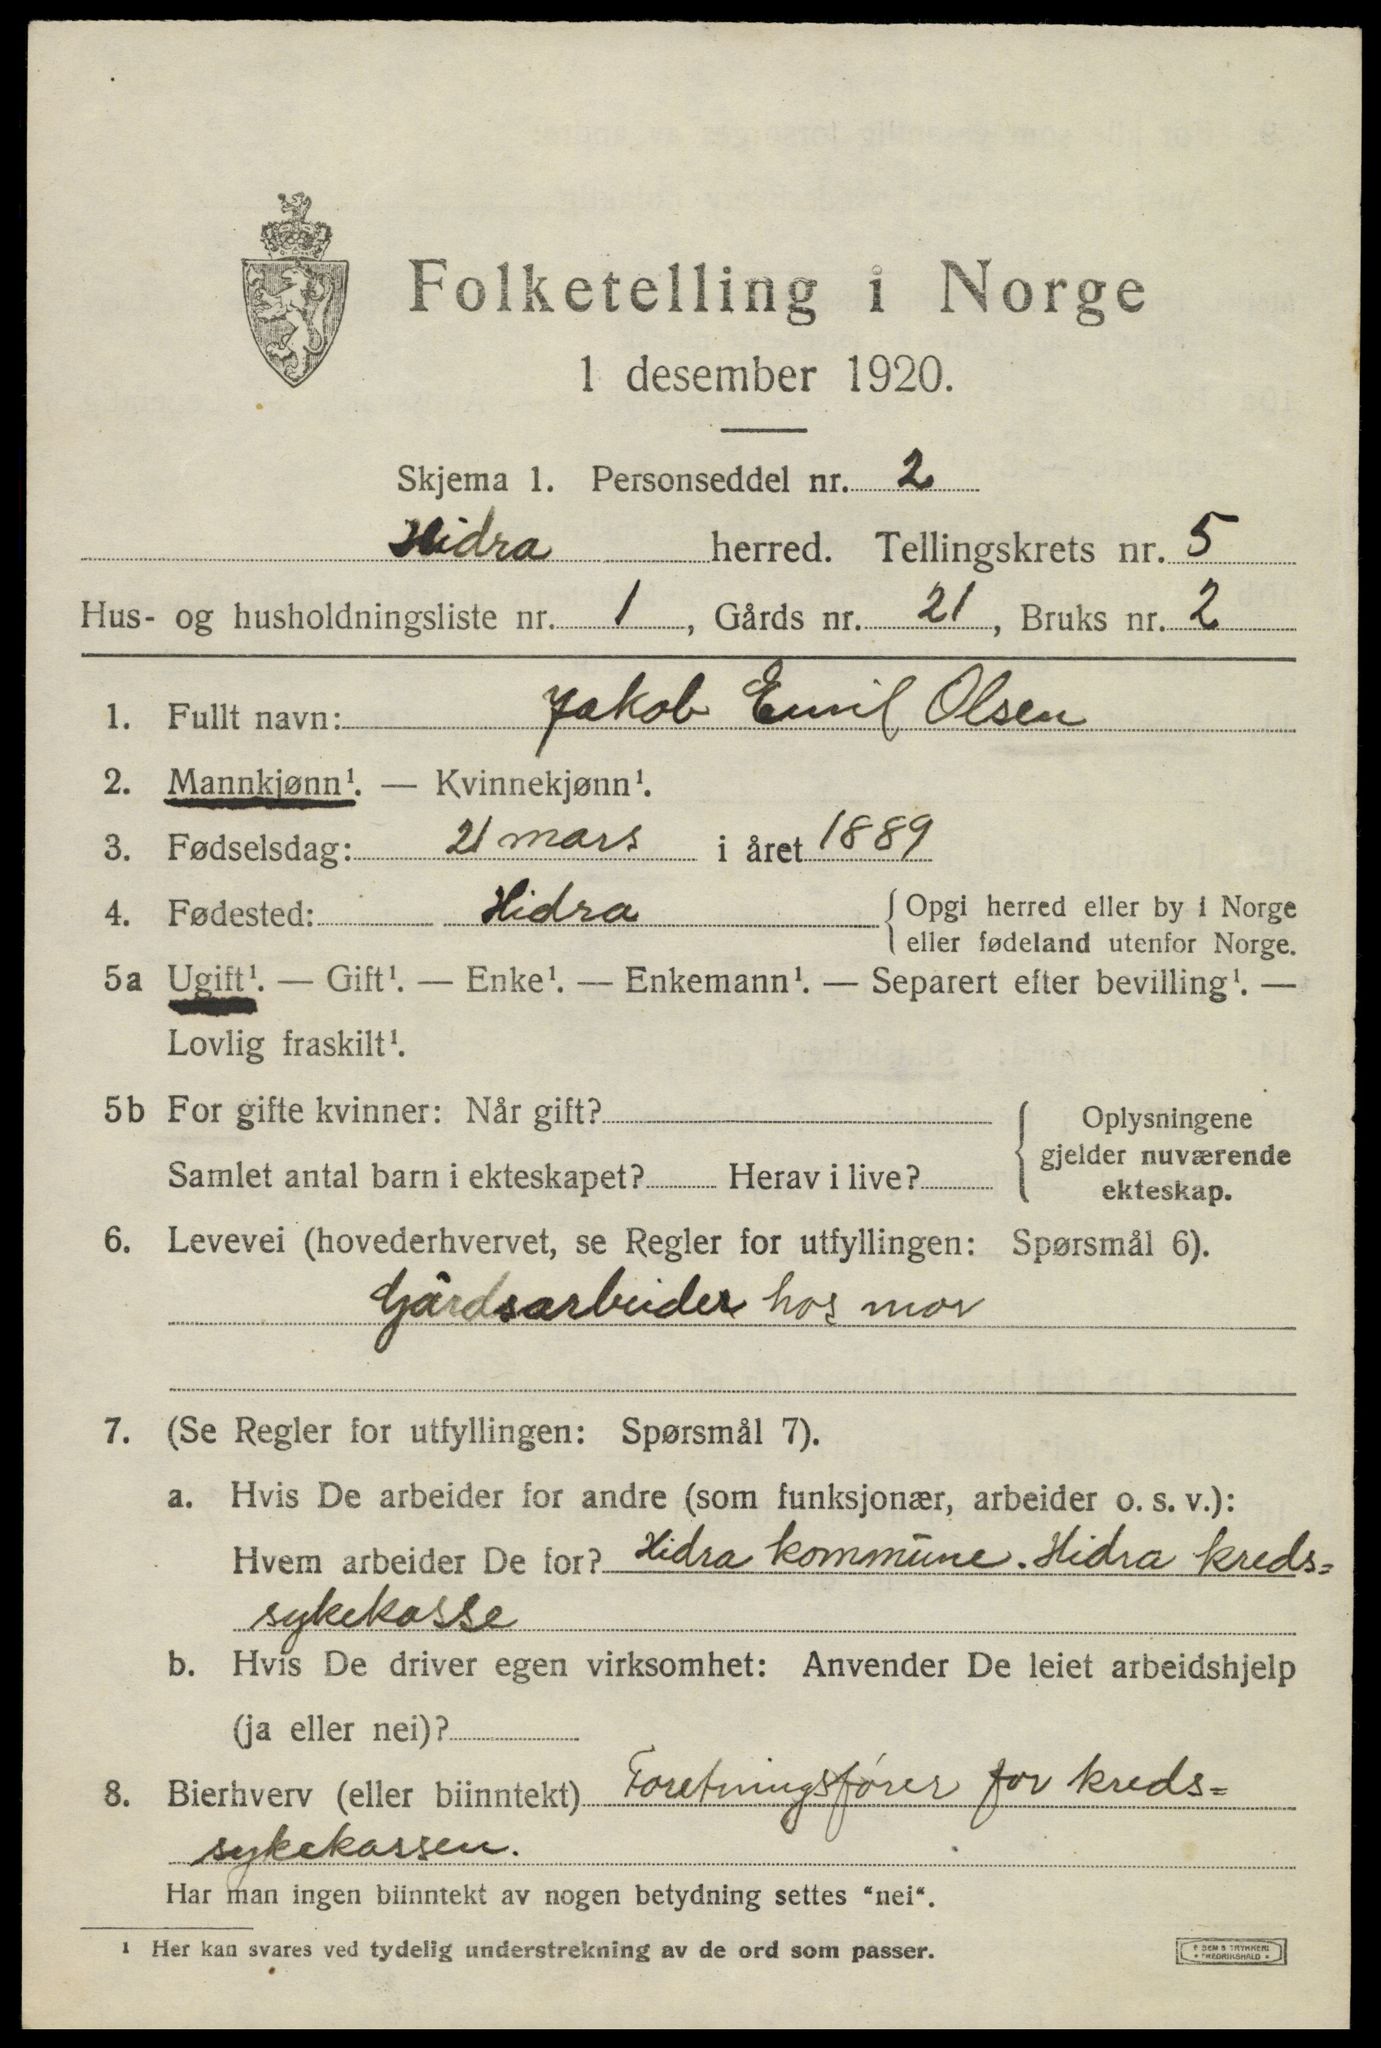 Folketelling i Norge
1 desember 1920.
Skjema 1. Personseddel nr. 2
Hidra herred. Tellingskrets nr. 5
Hus- og husholdningsliste nr. 1, Gårds nr. 21, Bruks nr. 2
1. Fullt navn: Jakob Emil Olsen
2. Mannkjønn¹. — Kvinnekjønn¹.
3. Fødselsdag: 21 mars i året 1889
4. Fødested: Hidra { Opgi herred eller by i Norge
eller fødeland utenfor Norge.
5a Ugift¹. — Gift¹. — Enke¹. — Enkemann¹. — Separert efter bevilling¹. —
Lovlig fraskilt¹.
5b For gifte kvinner: Når gift?
Samlet antal barn i ekteskapet? Herav i live?
{ Oplysningene
gjelder nuværende
ekteskap.
6. Levevei (hovederhvervet, se Regler for utfyllingen: Spørsmål 6).
Gårdsarbeider hos mor
7. (Se Regler for utfyllingen: Spørsmål 7).
a. Hvis De arbeider for andre (som funksjonær, arbeider o. s. v.):
Hvem arbeider De for? Hidra kommune. Hidra kreds=
sykekasse
b. Hvis De driver egen virksomhet: Anvender De leiet arbeidshjelp
(ja eller nei)?
8. Bierhverv (eller biinntekt) Foretningsfører for kreds=
sykekassen.
Har man ingen biinntekt av nogen betydning settes "nei".
¹ Her kan svares ved tydelig understrekning av de ord som passer.
SEMS TRYKKERI
FREDRIKSHALD